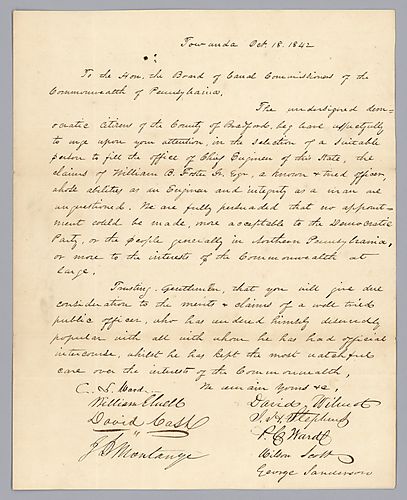 Towanda Oct 18. 1842
To the Hon. the Board of Canal Commissioners of the
Commonwealth of Pennsylvania.
The undersigned dem-
ocratic citizens of the County of Bradford, beg leave respectfully
to urge upon your attention, in the selection of a suitable
person to fill the office of Chief Engineer of this State, the
claims of William B. Foster Jr. Esqr., a known & tried officer,
whose abilities as an Engineer and integrity as a man are
unquestioned. We are fully persuaded that no appoint-
ment could be made, more acceptable to the Democratic
Party, or the people generally in Northern Pennsylvania,
or more to the interests of the Commonwealth at
large.
Trusting, Gentlemen, that you will give due
consideration to the merits & claims of a well tried
public officer, who has rendered himself deservedly
popular with all with whom he has had official
intercourse, whilst he has kept the most watchful
care over the interests of the Commonwealth,
We remain yours &c.
C. L. Ward
William Elwell
David Cash
J. D. Montanye
David Wilmot
Stephens
Ward
Wilson Scott
George Sanderson